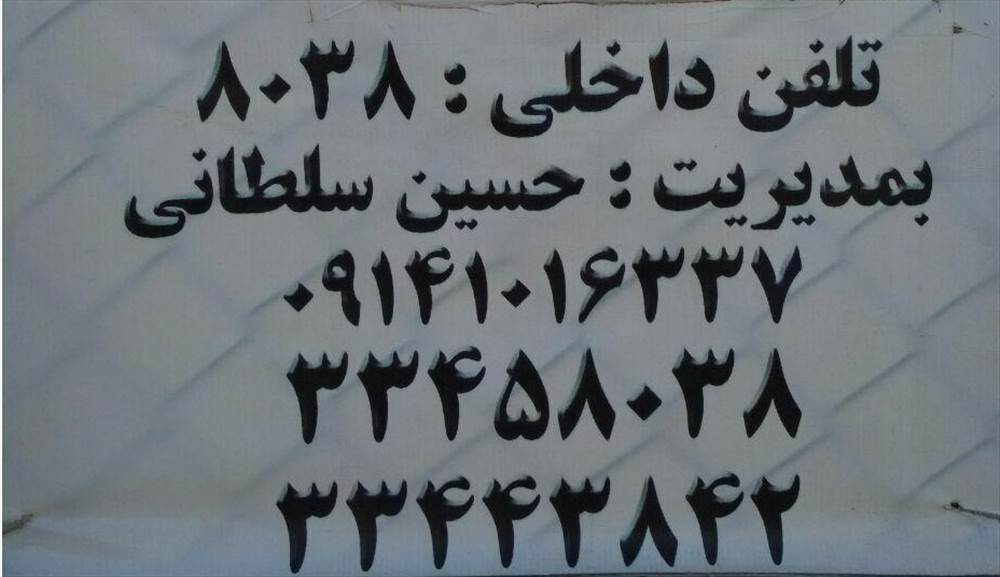 تلفن داخلی : ۸۰۳۸
بمدیریت : حسین سلطانی
۰۹۱۴۱۰۱۶۳۳۷
۳۳۴۵۸۰۳۸
۳۳۴۴۳۸۴۲